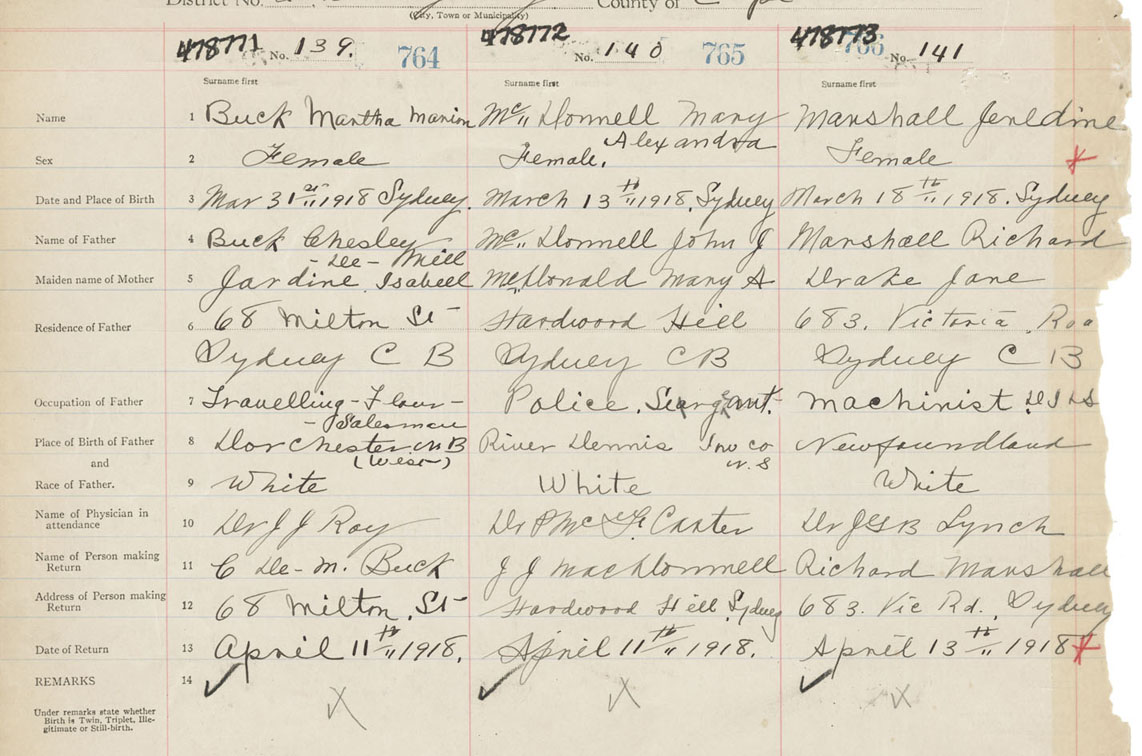 District No.
County of
(City, Town or Municipality)
478771 No. 139. 764 478772 No. 140 765 478773 766 No. 141
Surname first Surname first Surname first
Name 1 Buck Martha Marion McDonnell Mary Alexandra Marshall Jeraldine
Sex 2 Female Female. Female
Date and Place of Birth 3 Mar 31st 1918 Sydney. March 13th 1918. Sydney March 18th 1918. Sydney
Name of Father 4 Buck Chesley -De-Mill McDonnell John J Marshall Richard
Maiden name of Mother 5 Jardine Isabell McDonald Mary A Drake Jane
Residence of Father 6 68 Milton St Hardwood Hill 683. Victoria Roa
Sydney C B Sydney CB Sydney C B
Occupation of Father 7 Travelling-Flour- Police. Seargant. Machinist
-Salesman
Place of Birth of Father 8 Dorchester. N B River Dennis Inv co Newfoundland
and (West) N.S
Race of Father. 9 White White White
Name of Physician in attendance 10 Dr J J Roy Dr P Mc F. Carter Dr J G B Lynch
Name of Person making Return 11 C De-M. Buck J J MacDonnell Richard Marshall
Address of Person making Return 12 68 Milton. St Hardwood Hill Sydney 683. Vic Rd. Sydney
Date of Return 13 April 11th 1918. April 11th 1918. April 13th 1918
REMARKS 14
Under remarks state whether
Birth is Twin, Triplet, Ille-
gitimate or Still-birth.